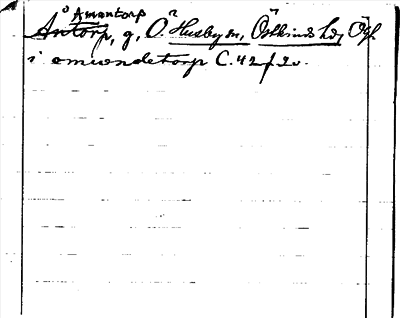 Åmantorp
Antorp, g, Ö. Husby sn, Östkinds hd, Ögl.
i omiondetorp C. 42 f 20.